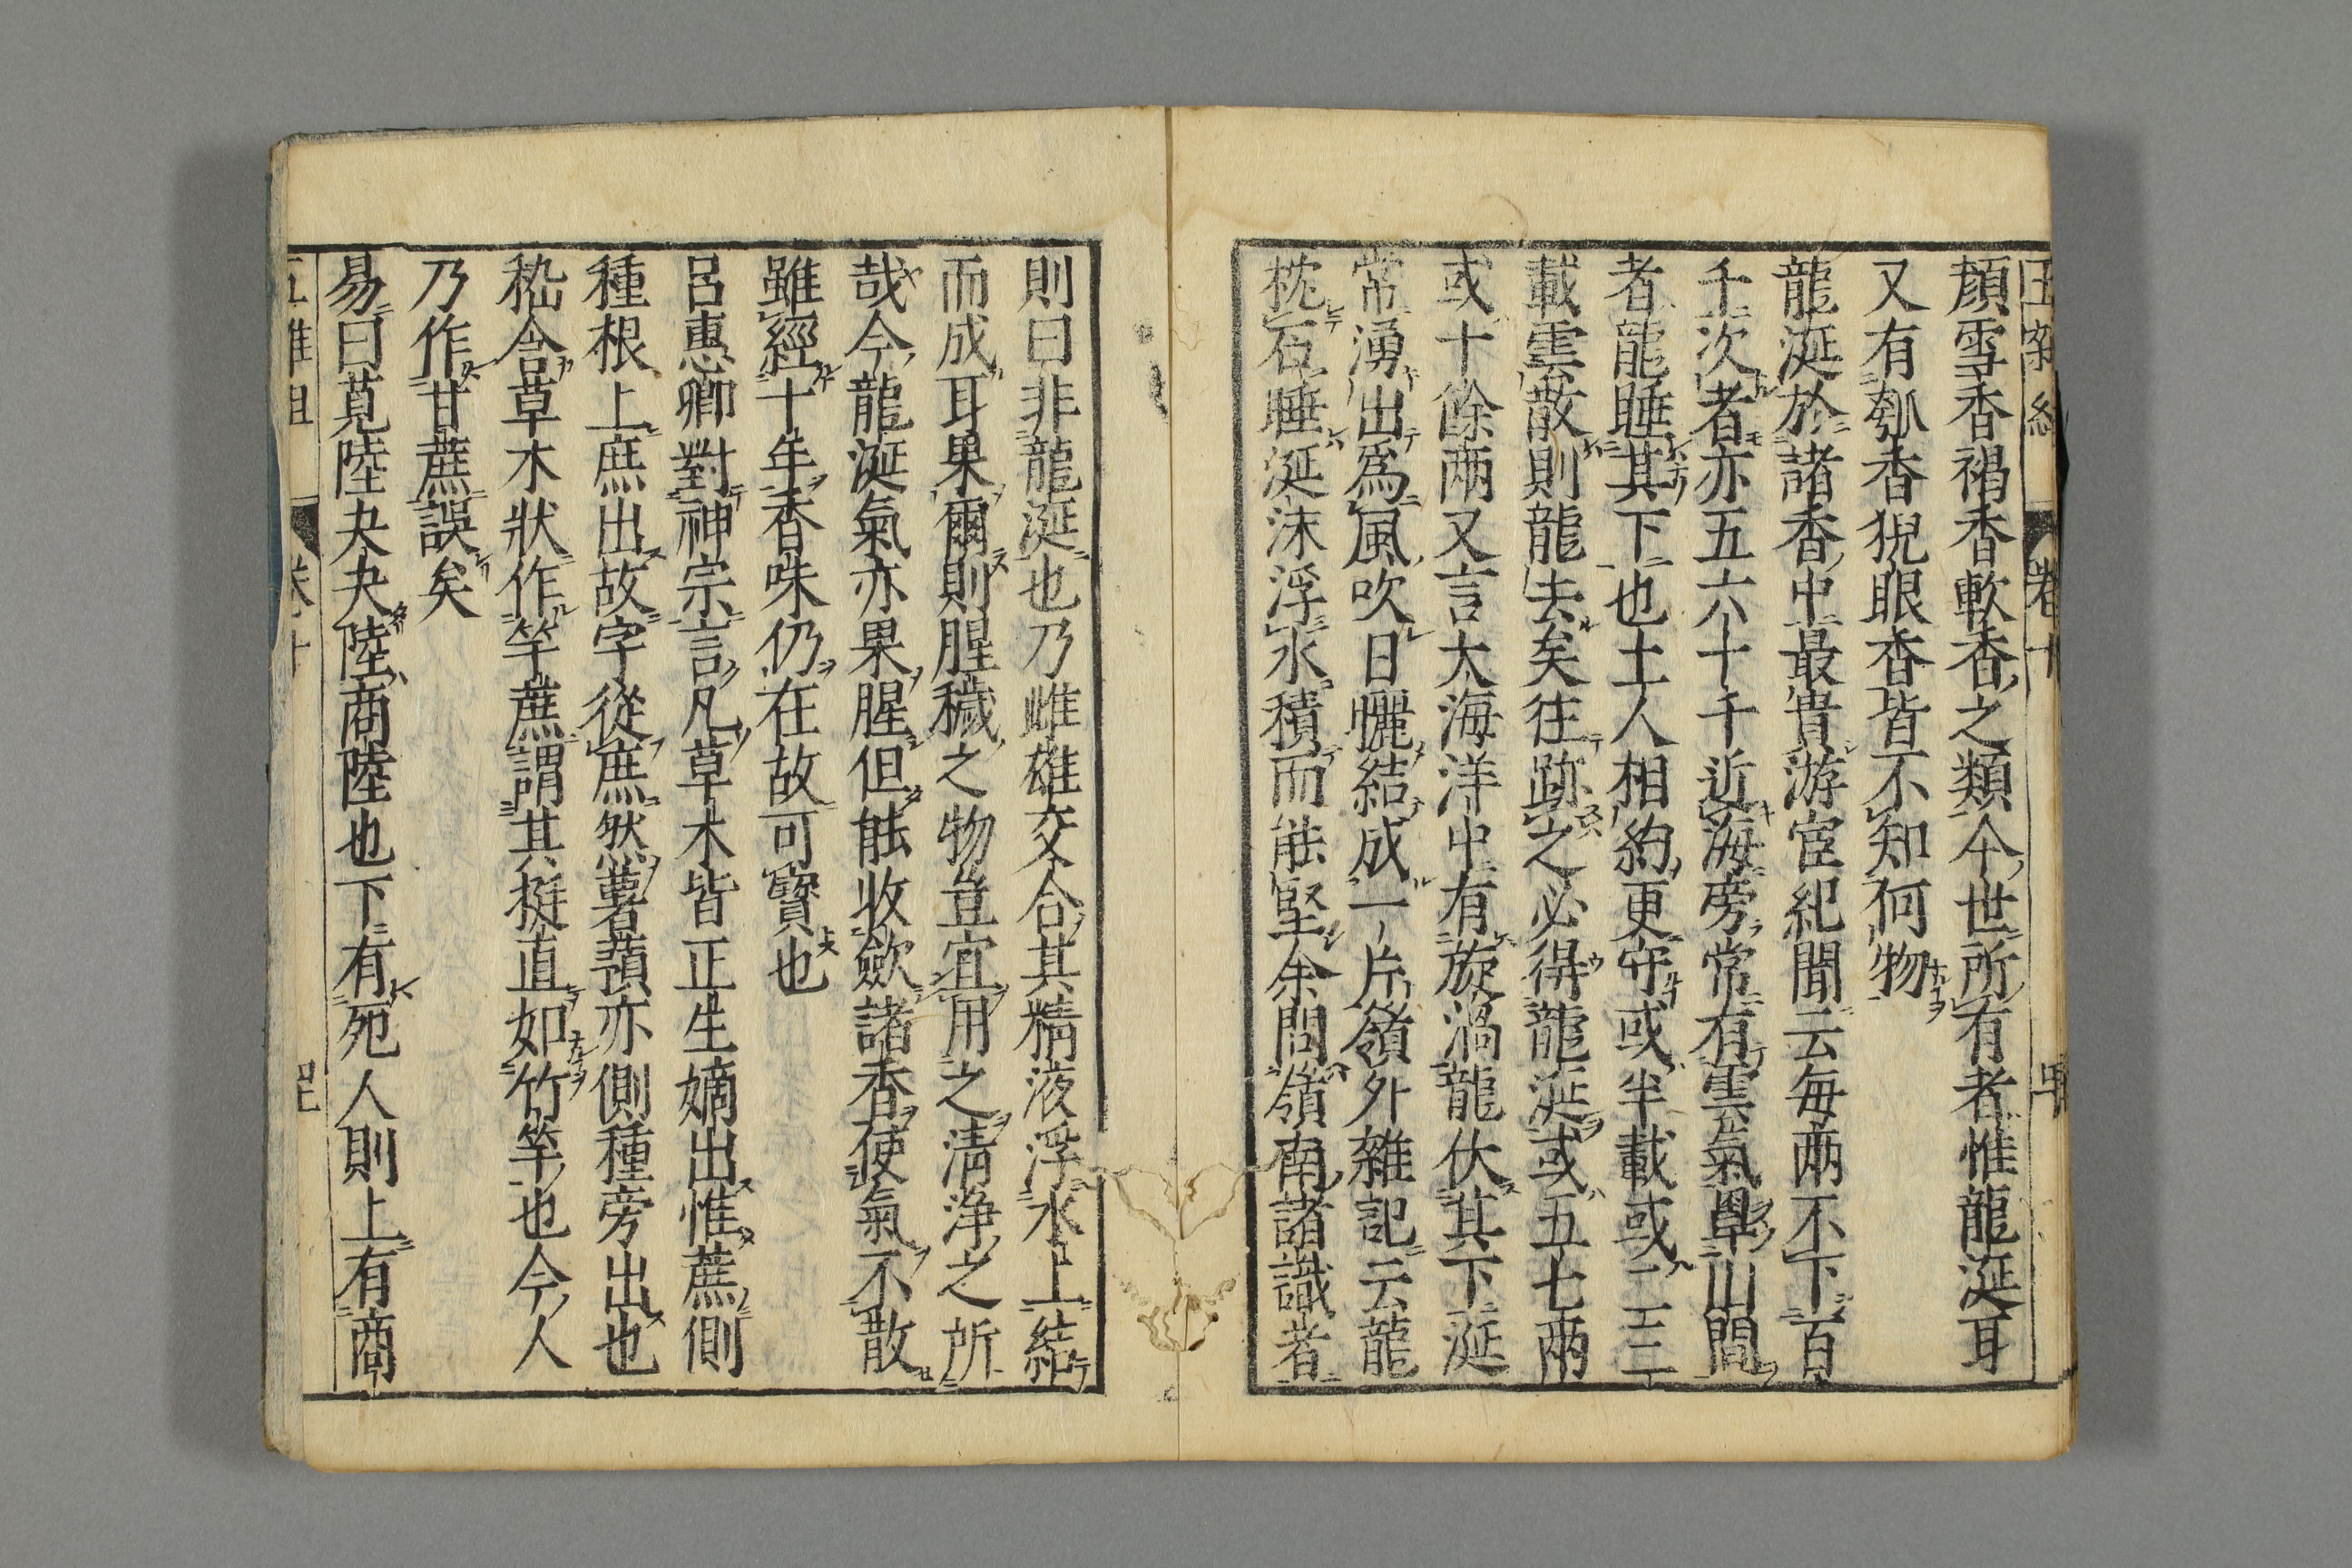 顏雪香褐香軟香之類今世所有者惟龍涎耳
又有瓠香猊眼香皆不知何物
龍涎於諸香中最貴游宦紀聞云每兩不下百
千次者亦五六十千近海旁常有雲氣罩山間
者龍睡其下也土人相約更守或半載或二三
載雲散則龍去矣往跡之必得龍涎或五七兩
或十餘兩又言大海洋中有旋渦龍伏其下涎
常湧出爲風吹日曬結成一片嶺外雜記云龍
枕石睡涎沫浮水積而能堅余問嶺南諸識者
則曰非龍涎也乃雌雄交合其精液浮水上結
而成耳果爾則腥穢之物豈宜用之清淨之所
哉今龍涎氣亦果腥但能收歛諸香使氣不散
雖經十年香味仍在故可寶也
呂惠卿對神宗言凡草木皆正生嫡出惟蔗側
種根上庶出故字從庶然薯蕷亦側種旁出也
嵇含草木狀作竿蔗謂其挺直如竹竿也今人
乃作甘蔗誤矣
易曰莧陸夬夬陸商陸也下有死人則上有商